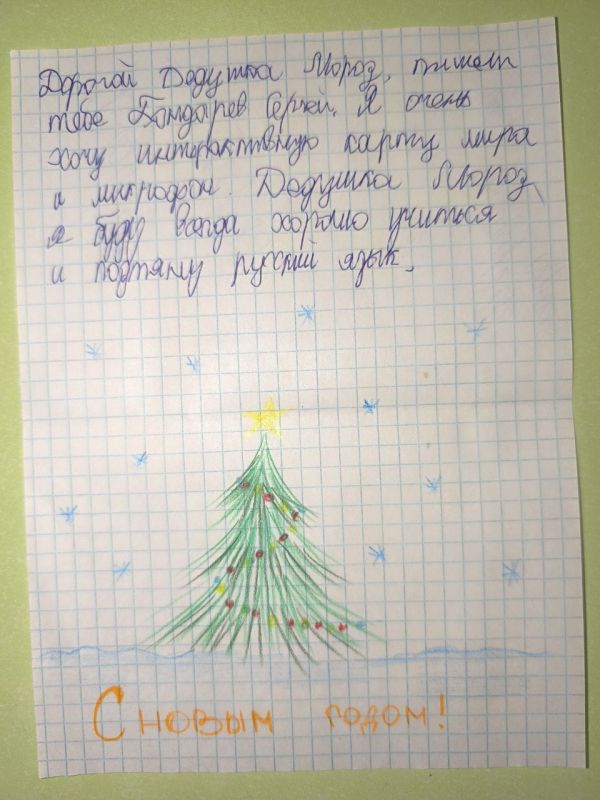 Дорогой Дедушка Мороз, пишет
тебе Бондарев Сергей. Я очень
хочу интерактивную карту мира
и микрофон. Дедушка Мороз,
я буду всегда хорошо учиться
и подтяну русский язык.
С новым годом!